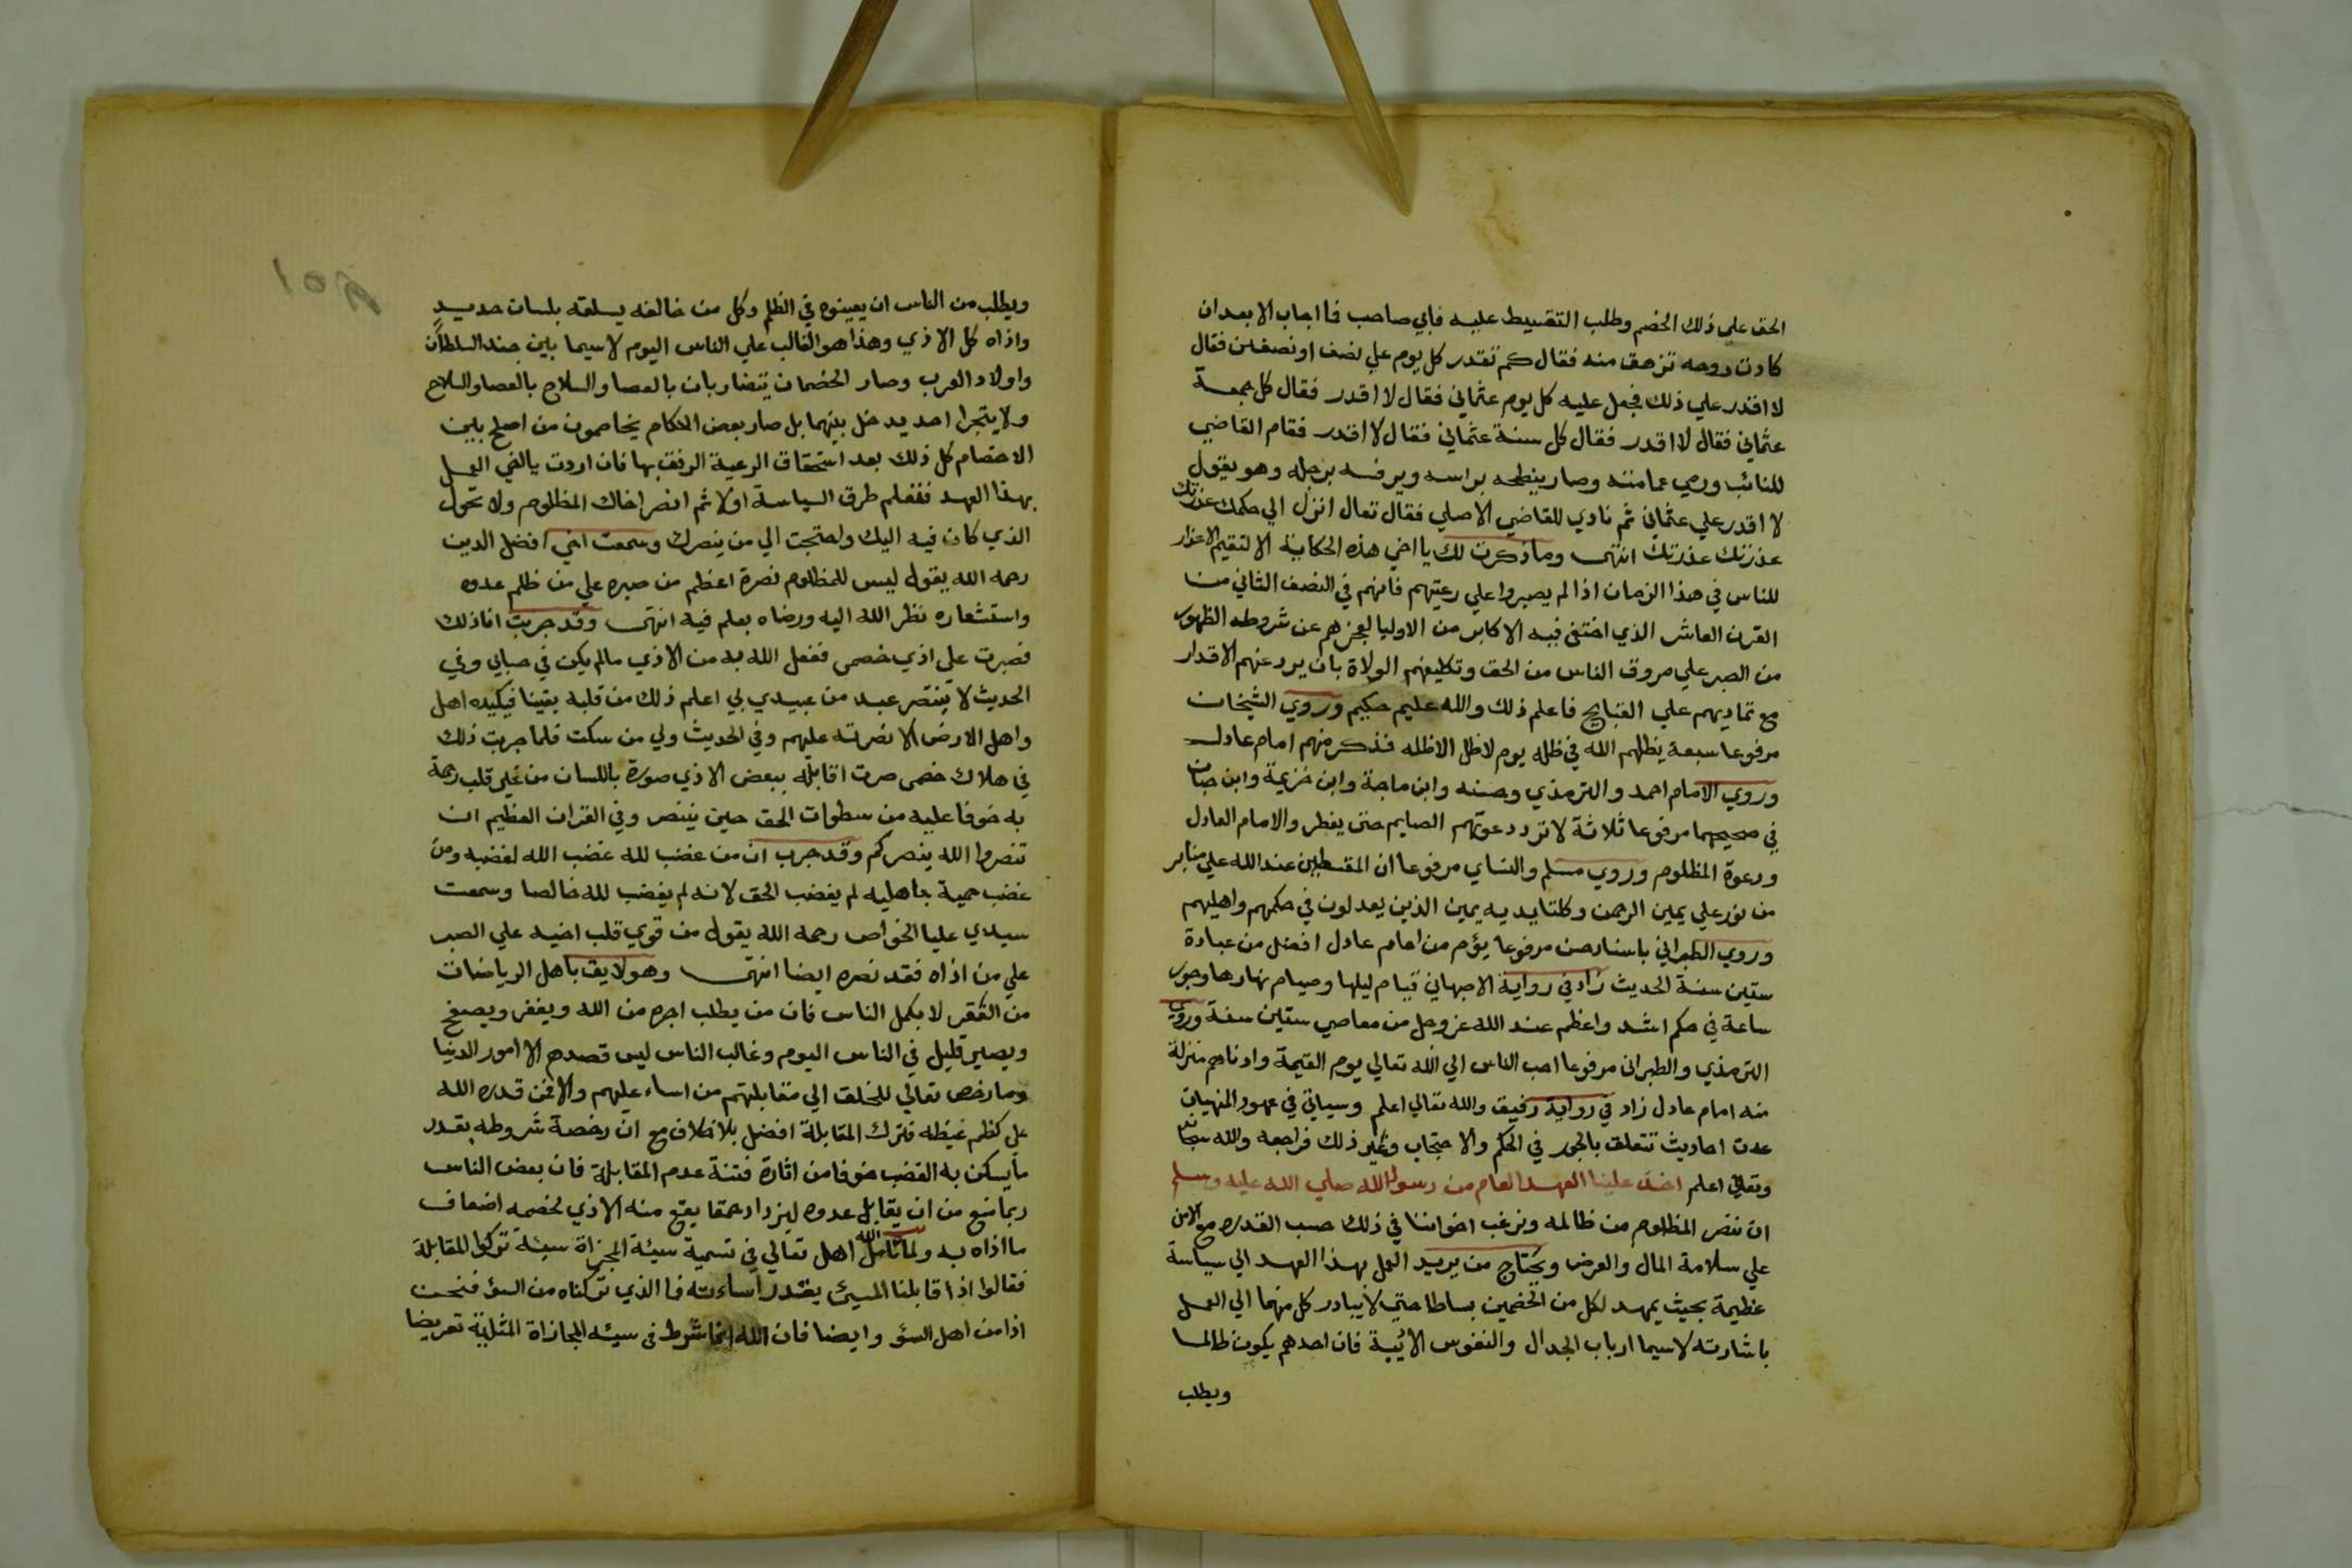 الحق علي ذلك الخصم وطلب التقسيط عليه فابي صاحب فا اجاب الا بعد ان
كادت روحه تزهق منه فقال كم تقدر كل يوم علي نصف او نصفين فقال
لا اقدر علي ذلك فجعل عليه كل يوم عثماني فقال لا اقدر فقال كل جمعة
عثماني فقال لا اقدر فقال كل سنة عثماني فقال لا اقدر فقام القاضي
للنائب ورمي عمامته وصار ينطحه براسه ويرفسه برجله وهو يقول
لا اقدر علي عثماني ثم نادي للقاضي الاصلي فقال تعال انزل الي حكمك عذرتك
عذرتك عذرتك انتهى وما ذكرت لك يا اخي هذه الحكاية الا لتقيم الاعذار
للناس في هذا الزمان اذا لم يصبروا علي رعيتهم فانهم في النصف الثاني من
القرن العاشر الذي اختفى فيه الاكابر من الاوليا لعجزهم عن شروط الظهور
من الصبر علي مروق الناس من الحق وتكليفهم الولاة بان يرد عنهم الاقدار
مع تماديهم علي القبايح فاعلم ذلك والله عليم حكيم وروي الشيخان
مرفوعا سبعة يظلهم الله في ظله يوم لا ظل الا ظله فذكر منهم امام عادل
وروي الامام احمد والترمذي وحسنه وابن ماجة وابن خزيمة وابن حبان
في صحيحهما مرفوعا ثلاثة لا ترد دعوتهم الصايم حتى يفطر والامام العادل
ودعوة المظلوم وروي مسلم والنساي مرفوعا ان المقسطين عند الله علي منابر
من نور علي يمين الرحمن وكلتا يديه يمين الذين يعدلون في حكمهم واهليهم
وروي الطبراني باسناد حسن مرفوعا يوم من امام عادل افضل من عبادة
ستين سنة الحديث زاد في رواية الاصبهاني قيام ليلها وصيام نهارها وجور
ساعة في حكم اشد واعظم عند الله عز وجل من معاصي ستين سنة وروي
الترمذي والطبراني مرفوعا احب الناس الي الله تعالي يوم القيمة وادناهم منزلة
منه امام عادل زاد في رواية رفيق والله تعالي اعلم وسياتي في عهود المنهيات
عدت احاديث تتعلق بالجور في الحكم والاحتجاب وغير ذلك فراجعه والله سبحانه
وتعالي اعلم اخذ علينا العهد العام من رسول الله صلي الله عليه وسلم
ان ننصر المظلوم من ظالمه ونرغب اخواننا في ذلك حسب القدره مع الامن
علي سلامة المال والعرض ويحتاج من يريد العمل بهذا العهد الي سياسة
عظيمة بحيث يمهد لكل من الخصمين بساطا حتي لا يبادر كل منهما الي العمل
باشارته لا سيما ارباب الجدال والنفوس الابية فان احدهم يكون ظالما
ويطلب
ويطلب من الناس ان يعينوه في الظلم وكل من خالفه يسلقه بلسان حديد
واذاه كل الاذي وهذا هو الغالب علي الناس اليوم لا سيما بين جند السلطان
واولاد العرب وصار الخصمان يتضاربان بالعصا والسلاح بالعصا والسلاح
ولا يتجرا احد يدخل بينهما بل صار بعض الحكام يخاصمون من اصلح بين
الاخصام كل ذلك بعد استحقاق الرعية الرفق بها فان اردت يا اخي العمل
بهذا العهد فتعلم طرق السياسة اولا ثم انصر اخاك المظلوم ولا تحول
الذي كان فيه اليك واحتجت الي من ينصرك وسمعت اخي افضل الدين
رحمه الله يقول ليس للمظلوم نصرة اعظم من صبره علي من ظلم عدوه
واستشعاره نظر الله اليه ورضاه بعلم فيه انتهى وقد جربت انا ذلك
فصبرت علي اذي خصمي ففعل الله به من الاذي ما لم يكن في حسابي وفي
الحديث لا ينتصر عبد من عبيدي بي اعلم ذلك من قلبه يقينا فيكيده اهل
واهل الارض الا نصرته عليهم وفي الحديث ولي من سكت فلما جربت ذلك
في هلاك خصمي صرت اقابله ببعض الاذي صورة باللسان من غير قلب رحمة
به خوفا عليه من سطوات الحق حين ينتصر وفي القران العظيم ان
تنصروا الله ينصركم وقد جرب ان من غضب لله غضب الله لغضبه ومن
غضب حمية جاهلية لم يغضب الحق لانه لم يغضب لله خالصا وسمعت
سيدي عليا الخواص رحمه الله يقول من قوي قلب اخيه علي الصبر
علي من اذاه فقد نصره ايضا انتهى وهو لايق باهل الرياضات
من الفقر لا بكمل الناس فان من يطلب اجره من الله ويغفر ويصفح
ويصبر قليل في الناس اليوم وغالب الناس ليس قصدهم الا امور الدنيا
وما رخص تعالي للخلق الي مقابلتهم من اساء عليهم والا فمن قدره الله
علي كظم غيظه فترك المقابلة افضل بلا خلاف مع ان رخصة شروطه بقدر
ما يسكن به الغضب خوفا من اثارة فتنة عدم المقابلة فان بعض الناس
ربما منع من ان يقابل عدوه ليزداد حمقا يقع منه الاذي لخصمه اضعاف
ما اذاه به ولما تامل اهل الله تعالي في تسمية سيئة المجازاة سيئة تركوا المقابلة
فقالوا اذا قابلنا المسيئ بقدر اساءته فا الذي تركناه من السؤ فنحن
اذا من اهل السؤ وايضا فان الله انما شرط في سيئه المجازاة المثلية تعريضا